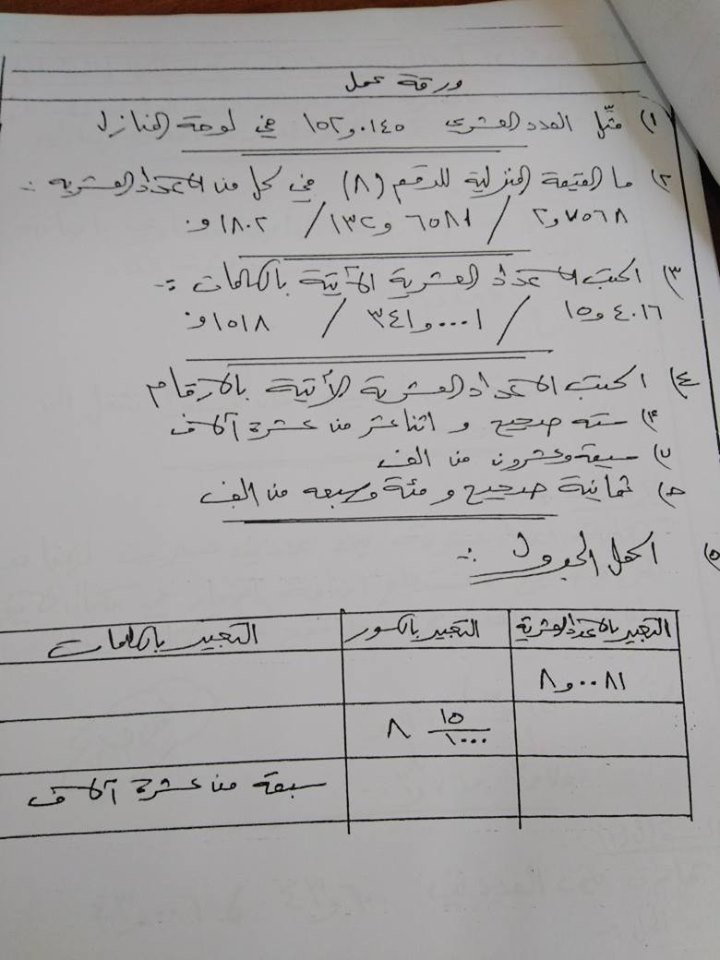 ورقة عمل
١) مثّل العدد العشري ١٥٢و٠١٤٥ في لوحة المنازل
٢) ما القيمة المنزلية للرقم (٨) في كل من الاعداد العشرية :-
٢و٧٥٦٨ / ١٣٢و٦٥٨١ / ٠و١٨٠٢
٣) اكتب الاعداد العشرية الآتية بالكلمات :-
١٥و٤٠١٦ / ٣٤١و٠٠٠١ / ٠و١٥١٨
٤) اكتب الاعداد العشرية الأتية بالارقام
٢) سته صحيح و اثنا عشر من عشرة آلاف
ب) سبعة وعشرون من الف
ج) ثمانية صحيح و مئة وسبعه من الف
٥) اكمل الجدول :-
التعبير بالاعداد العشرية التعبير بالكسور التعبير بالكلمات
٨و٠٠٨١
٨ ١٥/١٠٠٠
سبعة من عشرة آلاف